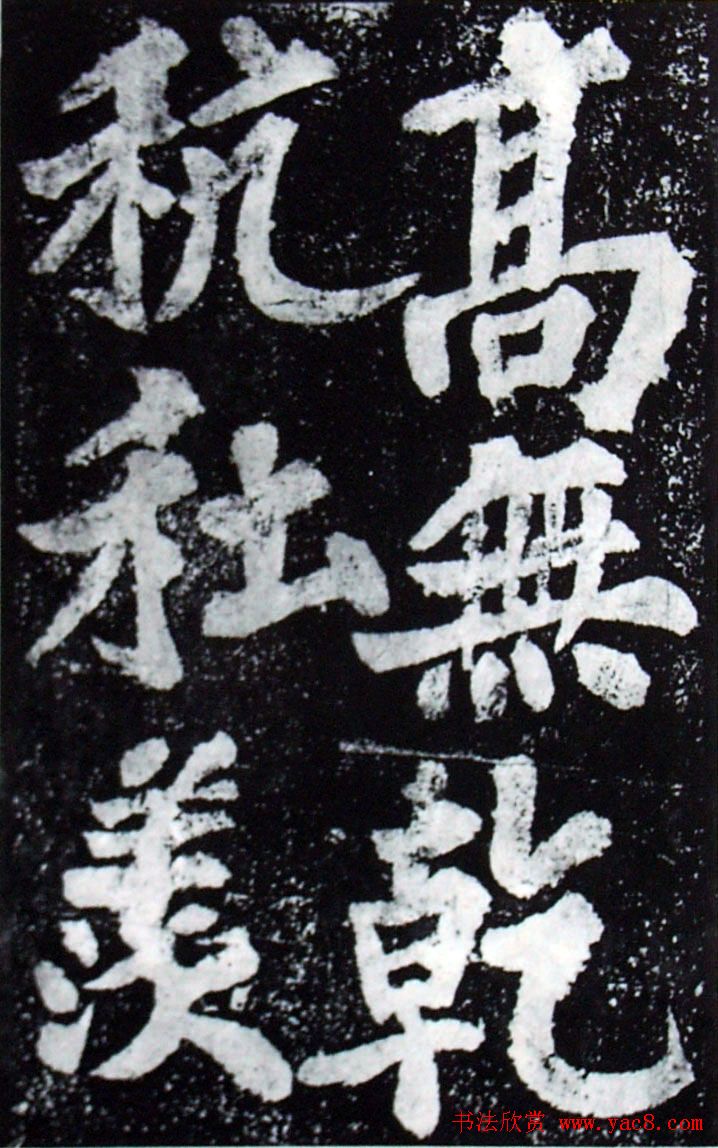 高無乾
秔社羡
书法欣赏 www.yac8.com